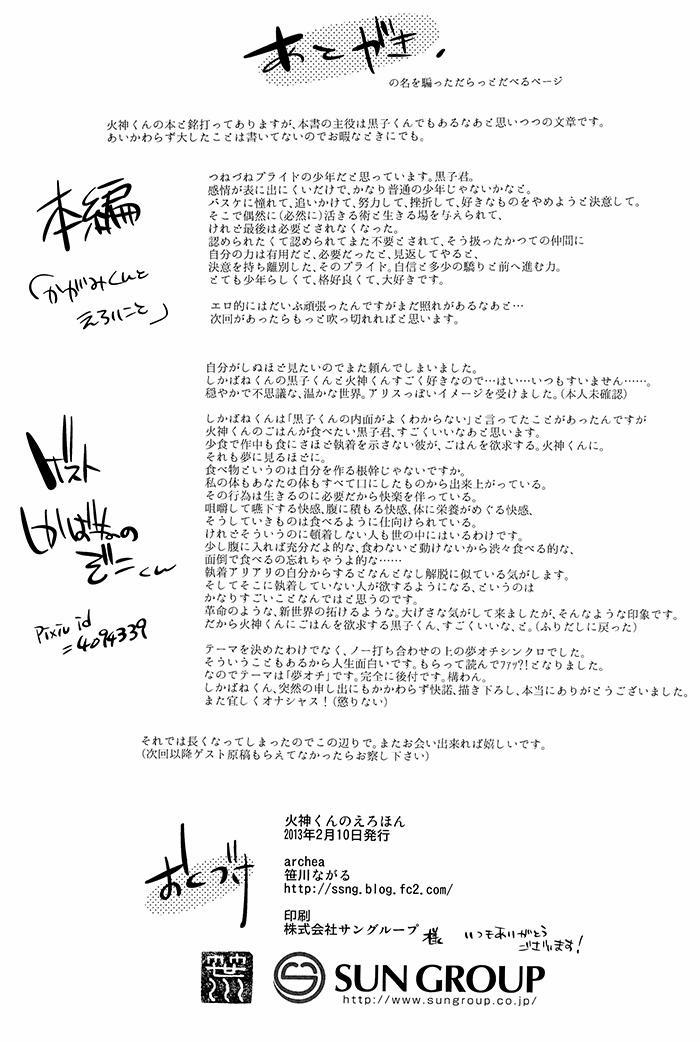 あとがき.
の名を騙っただらっとだべるページ
火神くんの本と銘打ってありますが、本書の主役は黒子くんでもあるなあと思いつつの文章です。
あいかわらず大したことは書いてないのでお暇なときにでも。
本編
「かがみくんと
えろいこと」
つねづねプライドの少年だと思っています。黒子君。
感情が表に出にくいだけで、かなり普通の少年じゃないかなと。
バスケに憧れて、追いかけて、努力して、挫折して、好きなものをやめようと決意して。
そこで偶然に(必然に)活きる術と生きる場を与えられて、
けれと最後は必要とされなくなった。
認められたくて認められてまた不要とされて、そう扱ったかつての仲間に
自分の力は有用だと、必要だったと、見返してやると、
決意を持ち離別した、そのプライド。自信と多少の驕りと前へ進む力。
とても少年らしくて、格好良くて、大好きです。
エロ的にはだいぶ頑張ったんですがまだ照れがあるなあと…
次回があったらもっと吹っ切れればと思います。
自分がしぬほと見たいのでまた頼んでしまいました。
しかばねくんの黒子くんと火神くんすごく好きなので…はい…いつもすいません……。
穏やかで不思議な、温かな世界。アリスっぽいイメージを受けました。(本人未確認)
ゲスト
しかばねの
ぞこくん
Pixiv id
=4094339
しかばねくんは「黒子くんの内面がよくわからない」と言ってたことがあったんですが
火神くんのごはんが食べたい黒子君、すごくいいなあと思います。
少食で作中も食にさほと執着を示さない彼が、ごはんを欲求する。火神くんに。
それも夢に見るほとに。
食べ物というのは自分を作る根幹じゃないですか。
私の体もあなたの体もすべて口にしたものから出来上がっている。
その行為は生きるのに必要だから快楽を伴っている。
咀嚼して嚥下する快感、腹に積もる快感、体に栄養がめぐる快感、
そうしていきものは食べるように仕向けられている。
けれとそういうのに頓着しない人も世の中にはいるわけです。
少し腹に入れば充分だよ的な、食わないと動けないから渋々食べる的な、
面倒で食べるの忘れちゃうよ的な……
執着アリアリの自分からするとなんとなし解脱に似ている気がします。
そしてそこに執着していない人が欲するようになる、というのは
かなりすごいことなんではと思うのです。
革命のような、新世界の拓けるような。大げさな気がして来ましたが、そんなような印象です。
だから火神くんにごはんを欲求する黒子くん、すごくいいな、と。(ふりだしに戻った)
テーマを決めたわけでなく、ノー打ち合わせの上の夢オチシンクロでした。
そういうこともあるから人生面白いです。もらって読んでﾌｧｯ?!となりました。
なのでテーマは「夢オチ」です。完全に後付です。構わん。
しかばねくん、突然の申し出にもかかわらず快諾、描き下ろし、本当にありがとうございました。
また宜しくオナシャス!(懲りない)
それでは長くなってしまったのでこの辺りで。またお会い出来れば嬉しいです。
(次回以降ゲスト原稿もらえてなかったらお察し下さい)
おくづけ
火神くんのえろほん
2013年2月10日発行
archea
笹川ながる
http://ssng.blog.fc2.com/
印刷
株式会社サングループ 様 いつもありがとう
ございます!
SUN GROUP
http://www.sungroup.co.jp/